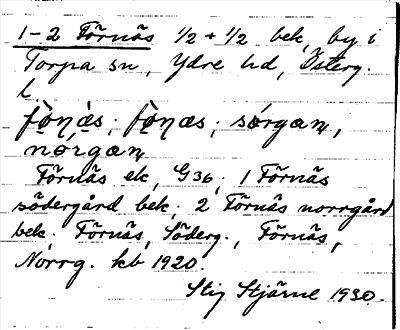 1-2 Förnäs 1/2 + 1/2 bek, by i
Torpa sn, Ydre hd, Österg.
l
fö̀ɳàs; fö̀ɳas; sørgaɳ,
nørgaɳ
Förnäs ek, G36; 1 Förnäs
södergård bek; 2 Förnäs norrgård
bek. Förnäs, Söderg., Förnäs,
Norrg. kb 1920.
Stig Stjärne 1930.